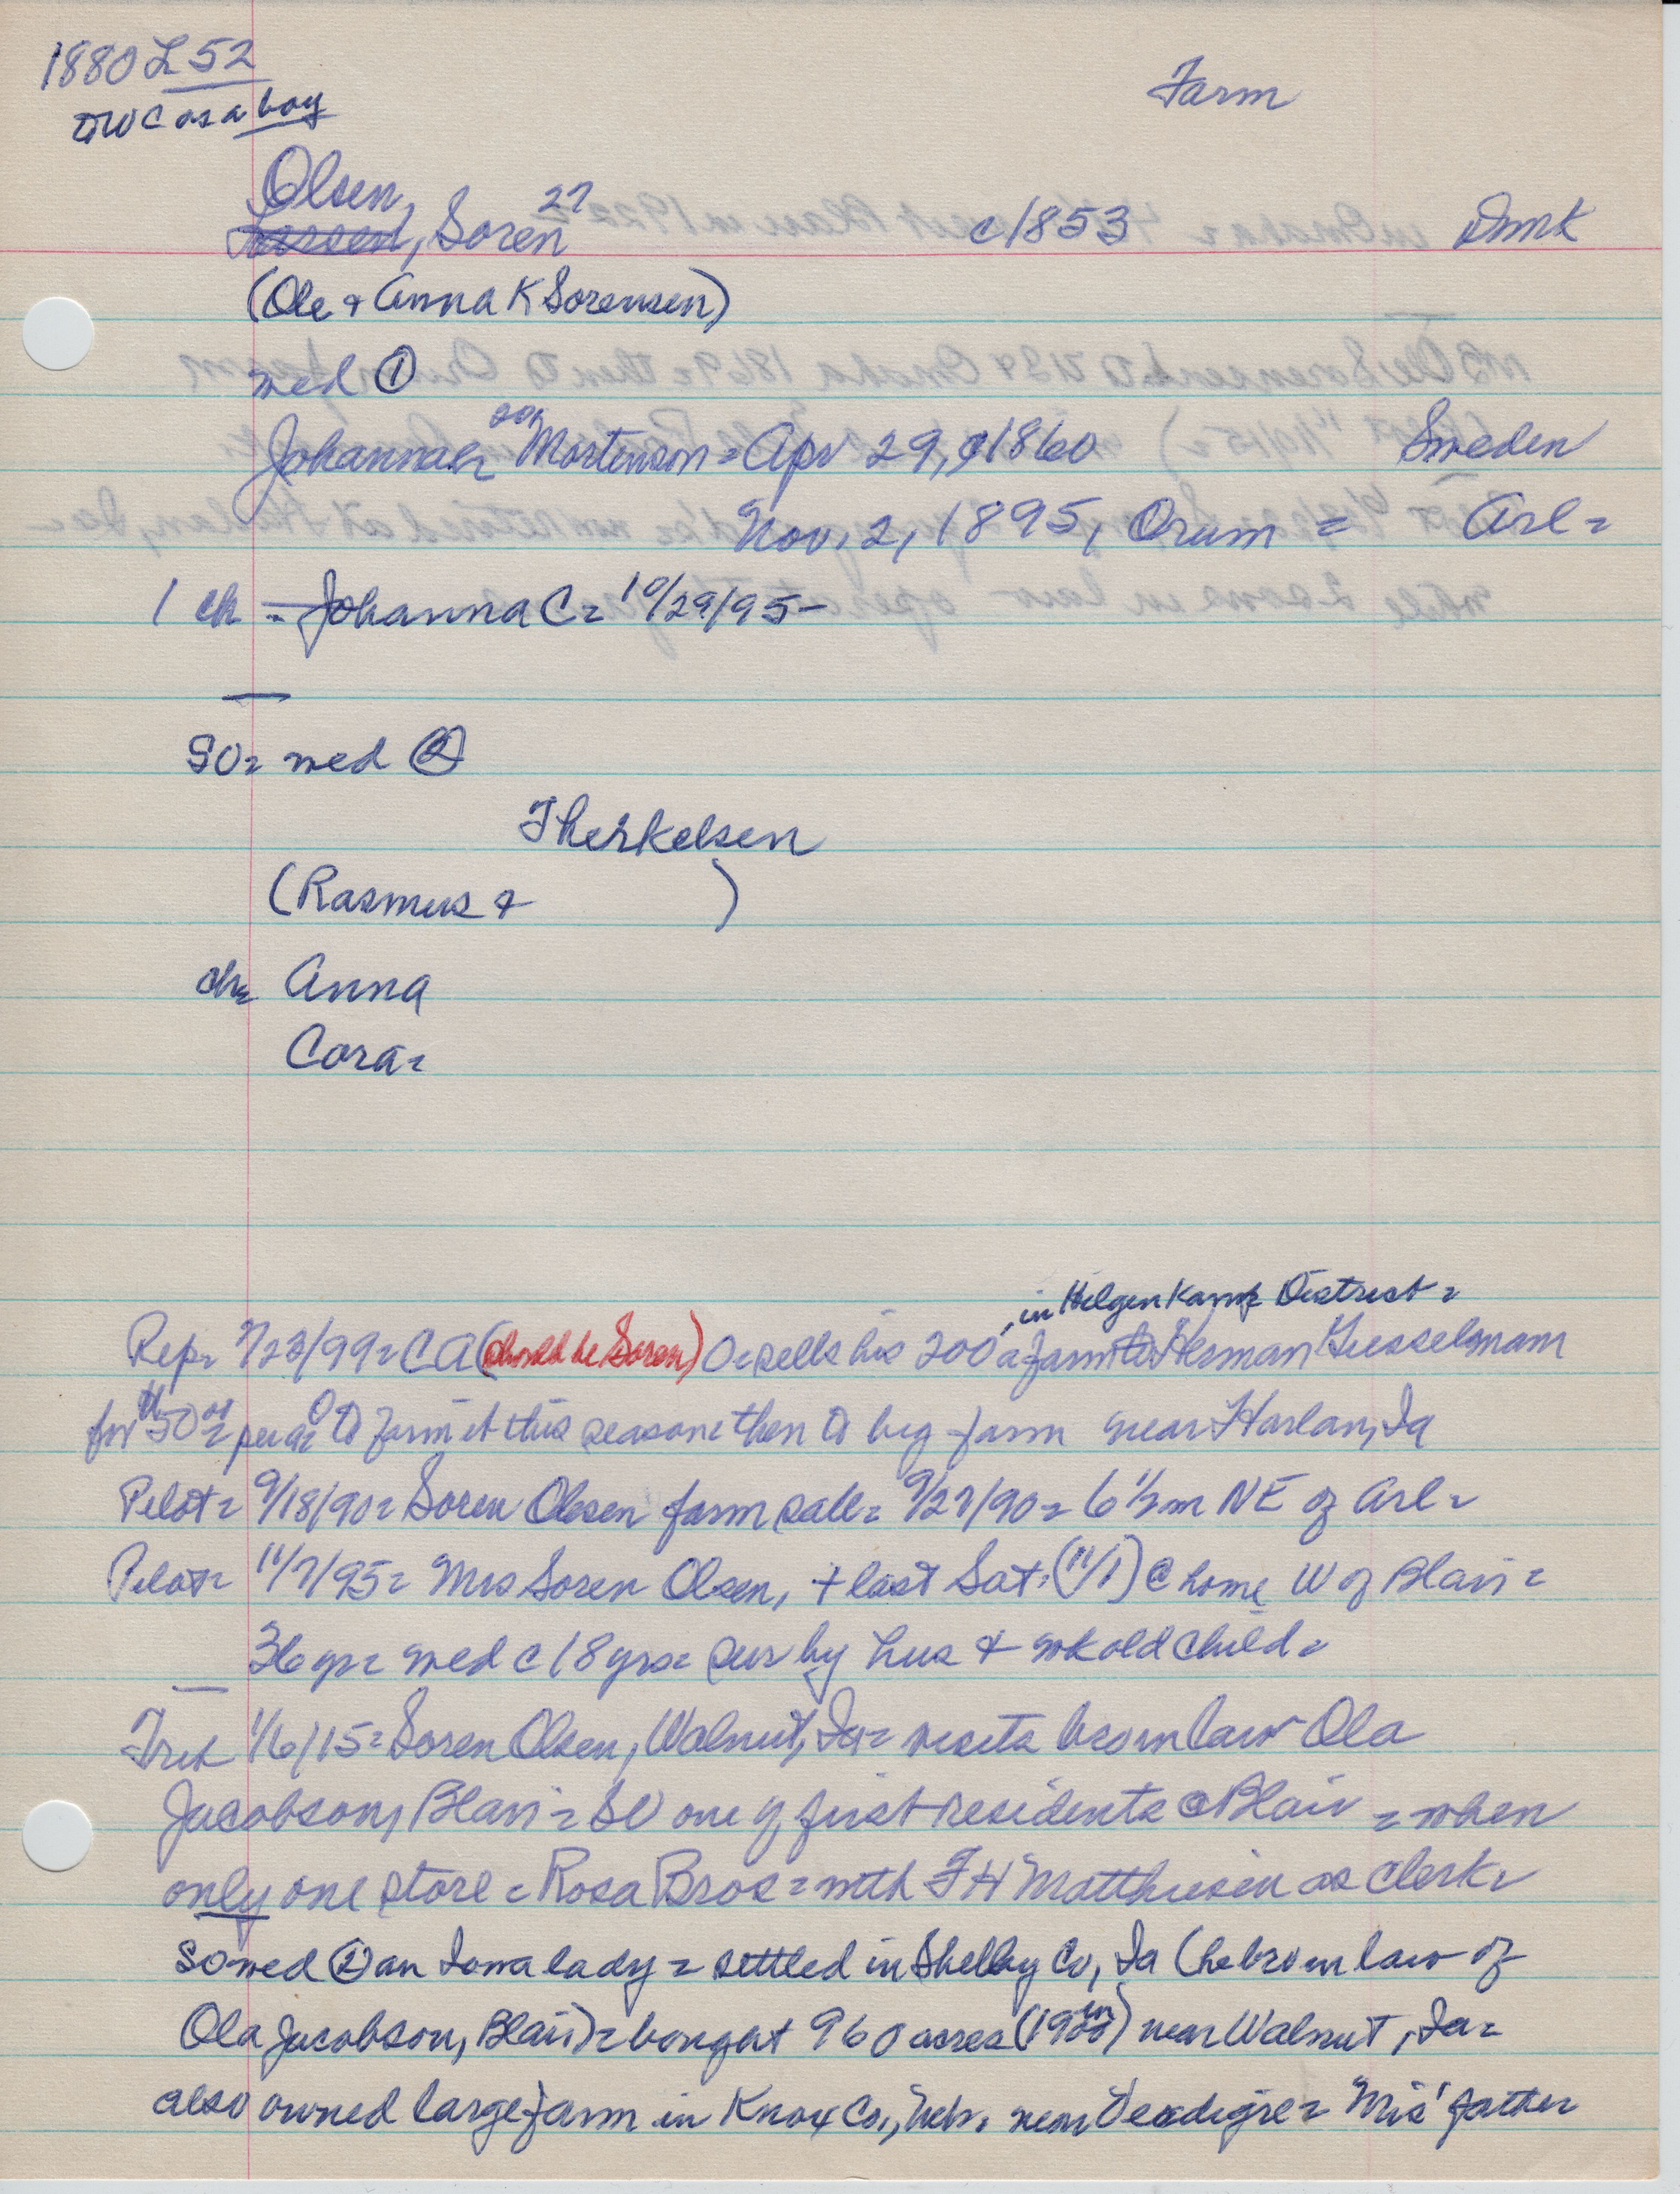 1880 L 52
TWC as a boy
Farm
Olsen, Soren 27 c1853 Dmk
(Ole & Anna K Sorensen)
med ①
Johannah Mortenson = Apr 29, 1860 Sweden
Nov, 2, 1895, Orum = Arl =
1 ch = Johanna C = 10/29/95 -
SO = med ②
Therkelsen
(Rasmus & )
ch = Anna
Cora =
, in Hilgenkamp District =
Rep = 7/23/99 = CA (should be Soren) O = sells his 200 a farm to Herman Giesselmann
for $50 00 per a = O to farm it this season = then to big farm near Harlan, Ia
Pilot = 9/18/90 = Soren Olsen farm sale = 9/27/90 = 6 1/2 m NE of Arl =
Pilot = 11/7/95 = Mrs Soren Olsen, + last Sat. (11/1) @ home W of Blair =
36 yr = med c 18 yrs = sur by hus & wk old child =
Trib 1/6/15 = Soren Olsen, Walnut, Ia = visits bro in law Ola
Jacobson, Blair = SO one of first residents @ Blair = when
only one store = Rosa Bros = with F H Matthiesen as clerk =
SO med ② an Iowa lady = settled in Shelby Co, Ia (he bro in law of
Ola Jacobson, Blair) = bought 960 acres (in 1900) near Walnut, Ia =
also owned large farm in Knox Co, Neb. near Verdigre = Mrs' father